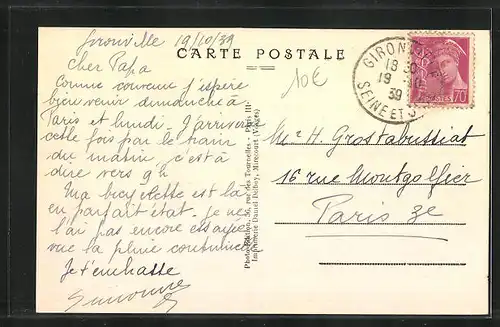 Gironville 19/10/39
CARTE POSTALE
10€
Cher Papa
Comme convenu j'espère
bien venir dimanche à
Paris et lundi. J'arriverai
cette fois par le train
du matin, c'est à
dire vers 9h
Ma bicyclette est là
en parfait état. Je ne
l'ai pas encore essayée
vue la pluie continuelle
Je t'embrasse
Simonne
Photo-Edition, 36, rue des Tournelles - Paris III
Imprimerie Daniel Delboy, Mirecourt (Vosges)
GIRONVILLE
18 30
19 10
39
SEINE ET
POSTES 70
Mr H. Grostabussiat
16 rue Montgolfier
Paris 3e